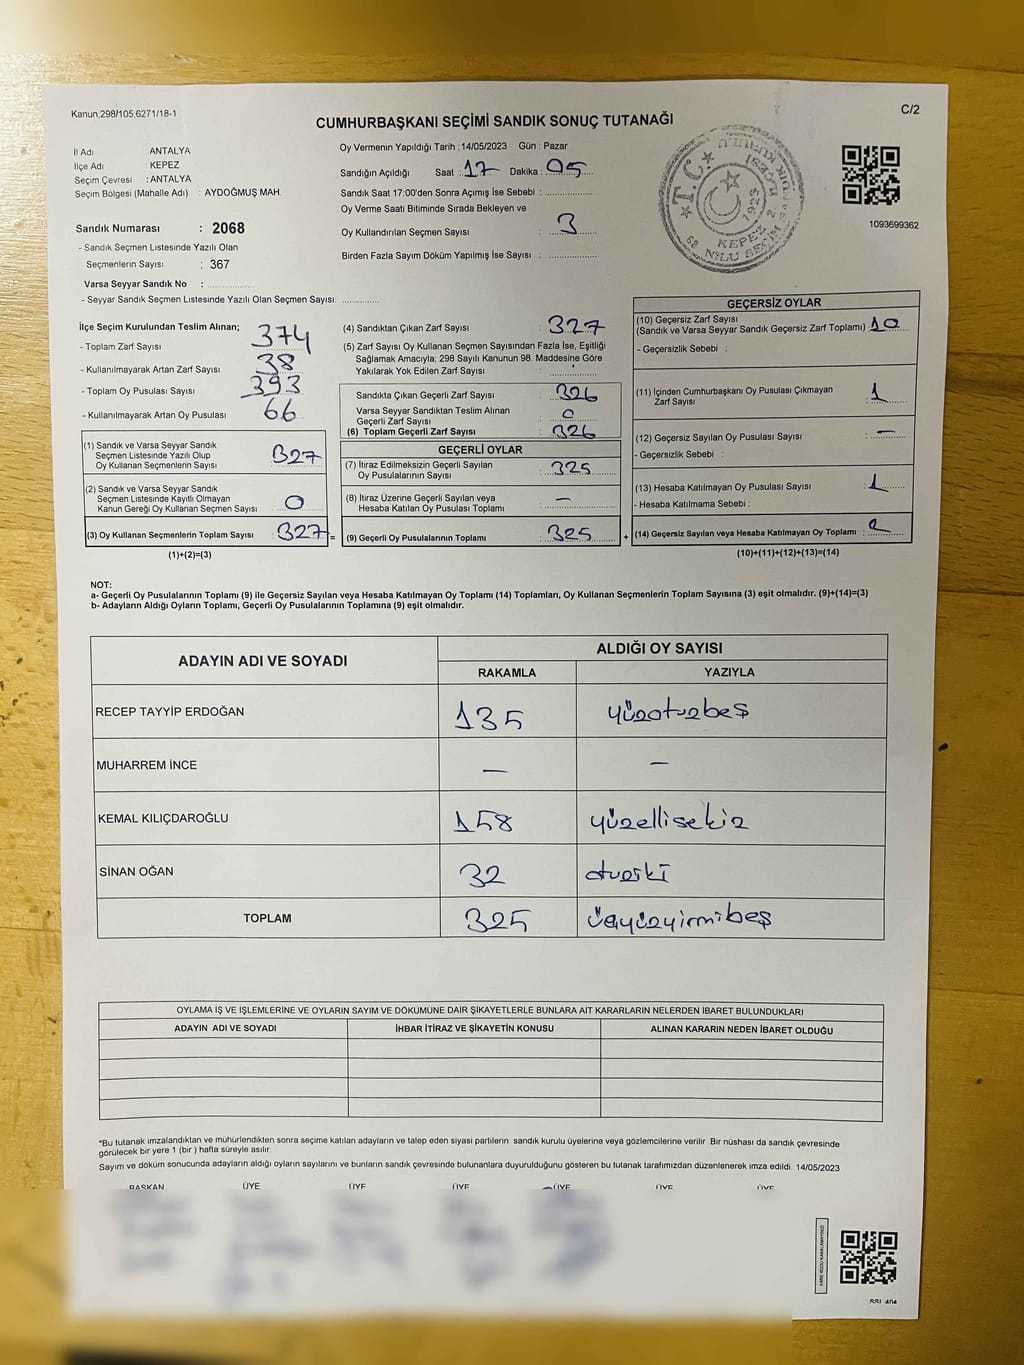 Kanun,298/105,6271/18-1
C/2
CUMHURBAŞKANI SEÇİMİ SANDIK SONUÇ TUTANAĞI
İl Adı : ANTALYA
İlçe Adı : KEPEZ
Seçim Çevresi : ANTALYA
Seçim Bölgesi (Mahalle Adı) : AYDOĞMUŞ MAH.
Oy Vermenin Yapıldığı Tarih :14/05/2023 Gün : Pazar
Sandığın Açıldığı Saat : 17 Dakika : 05
Sandık Saat 17:00'den Sonra Açımış İse Sebebi :
Oy Verme Saati Bitiminde Sırada Bekleyen ve
Oy Kullandırılan Seçmen Sayısı : 3
Birden Fazla Sayım Döküm Yapılmış İse Sayısı :
T.C.
KEPEZ 2.
1923
1093699362
Sandık Numarası : 2068
- Sandık Seçmen Listesinde Yazılı Olan
Seçmenlerin Sayısı : 367
Varsa Seyyar Sandık No :
- Seyyar Sandık Seçmen Listesinde Yazılı Olan Seçmen Sayısı:
İlçe Seçim Kurulundan Teslim Alınan;
- Toplam Zarf Sayısı : 374
- Kullanılmayarak Artan Zarf Sayısı : 38
- Toplam Oy Pusulası Sayısı : 393
- Kullanılmayarak Artan Oy Pusulası : 66
(1) Sandık ve Varsa Seyyar Sandık
Seçmen Listesinde Yazılı Olup
Oy Kullanan Seçmenlerin Sayısı : 327
(2) Sandık ve Varsa Seyyar Sandık
Seçmen Listesinde Kayıtlı Olmayan
Kanun Gereği Oy Kullanan Seçmen Sayısı : 0
(3) Oy Kullanan Seçmenlerin Toplam Sayısı : 327 =
(1)+(2)=(3)
(4) Sandıktan Çıkan Zarf Sayısı : 327
(5) Zarf Sayısı Oy Kullanan Seçmen Sayısından Fazla İse, Eşitliği
Sağlamak Amacıyla; 298 Sayılı Kanunun 98. Maddesine Göre
Yakılarak Yok Edilen Zarf Sayısı :
Sandıkta Çıkan Geçerli Zarf Sayısı : 326
Varsa Seyyar Sandıktan Teslim Alınan
Geçerli Zarf Sayısı : 0
(6) Toplam Geçerli Zarf Sayısı : 326
GEÇERLİ OYLAR
(7) İtiraz Edilmeksizin Geçerli Sayılan
Oy Pusulalarının Sayısı : 325
(8) İtiraz Üzerine Geçerli Sayılan veya
Hesaba Katılan Oy Pusulası Toplamı : —
(9) Geçerli Oy Pusulalarının Toplamı : 325 +
GEÇERSİZ OYLAR
(10) Geçersiz Zarf Sayısı
(Sandık ve Varsa Seyyar Sandık Geçersiz Zarf Toplamı) : 10
- Geçersizlik Sebebi :
(11) İçinden Cumhurbaşkanı Oy Pusulası Çıkmayan
Zarf Sayısı : 1
(12) Geçersiz Sayılan Oy Pusulası Sayısı : —
- Geçersizlik Sebebi :
(13) Hesaba Katılmayan Oy Pusulası Sayısı : 1
- Hesaba Katılmama Sebebi :
(14) Geçersiz Sayılan veya Hesaba Katılmayan Oy Toplamı : 2
(10)+(11)+(12)+(13)=(14)
NOT:
a- Geçerli Oy Pusulalarının Toplamı (9) ile Geçersiz Sayılan veya Hesaba Katılmayan Oy Toplamı (14) Toplamları, Oy Kullanan Seçmenlerin Toplam Sayısına (3) eşit olmalıdır. (9)+(14)=(3)
b- Adayların Aldığı Oyların Toplamı, Geçerli Oy Pusulalarının Toplamına (9) eşit olmalıdır.
ADAYIN ADI VE SOYADI ALDIĞI OY SAYISI
RAKAMLA YAZIYLA
RECEP TAYYİP ERDOĞAN 135 yüzotuzbeş
MUHARREM İNCE — —
KEMAL KILIÇDAROĞLU 158 yüzellisekiz
SİNAN OĞAN 32 otuziki
TOPLAM 325 üçyüzyirmibeş
OYLAMA İŞ VE İŞLEMLERİNE VE OYLARIN SAYIM VE DÖKÜMÜNE DAİR ŞİKAYETLERLE BUNLARA AİT KARARLARIN NELERDEN İBARET BULUNDUKLARI
ADAYIN ADI VE SOYADI İHBAR İTİRAZ VE ŞİKAYETİN KONUSU ALINAN KARARIN NEDEN İBARET OLDUĞU
*Bu tutanak imzalandıktan ve mühürlendikten sonra seçime katılan adayların ve talep eden siyasi partilerin sandık kurulu üyelerine veya gözlemcilerine verilir .Bir nüshası da sandık çevresinde
görülecek bir yere 1 (bir ) hafta süreyle asılır.
Sayım ve döküm sonucunda adayların aldığı oyların sayılarını ve bunların sandık çevresinde bulunanlara duyurulduğunu gösteren bu tutanak tarafımızdan düzenlenerek imza edildi. 14/05/2023
BAŞKAN ÜYE ÜYE ÜYE ÜYE ÜYE ÜYE